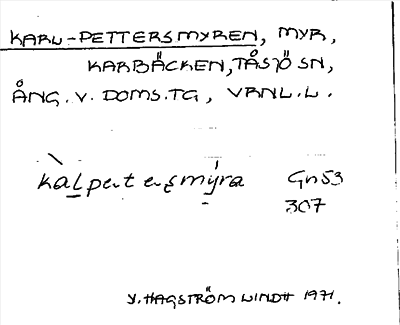 KARL-PETTERSMYREN, MYR,
KARBÄCKEN, TÅSJÖ SN,
ÅNG. V. DOMS. TG, VRNL. L.
kalpeterşmýra Gn53
307
Y. HAGSTRÖM LINDH 1971.